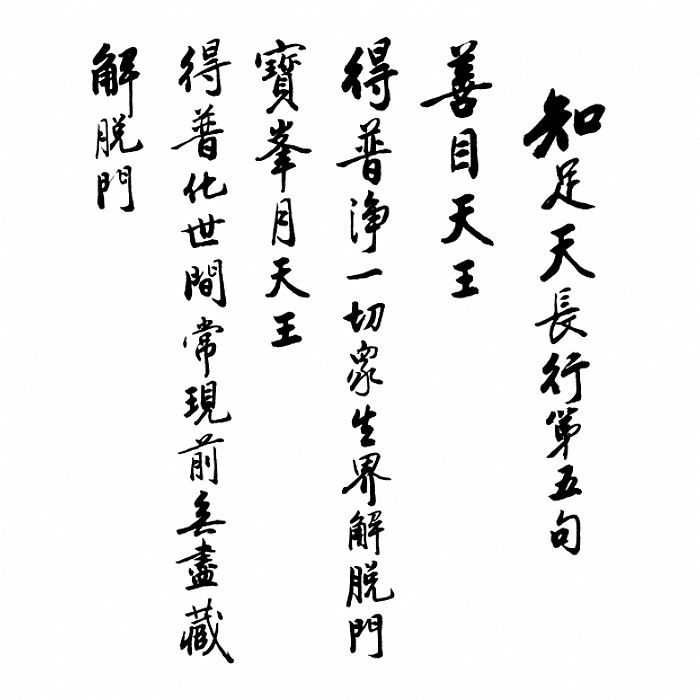 知足天長行第五句
善目天王
得普淨一切眾生界解脫門
寶峯月天王
得普化世間常現前無盡藏
解脫門